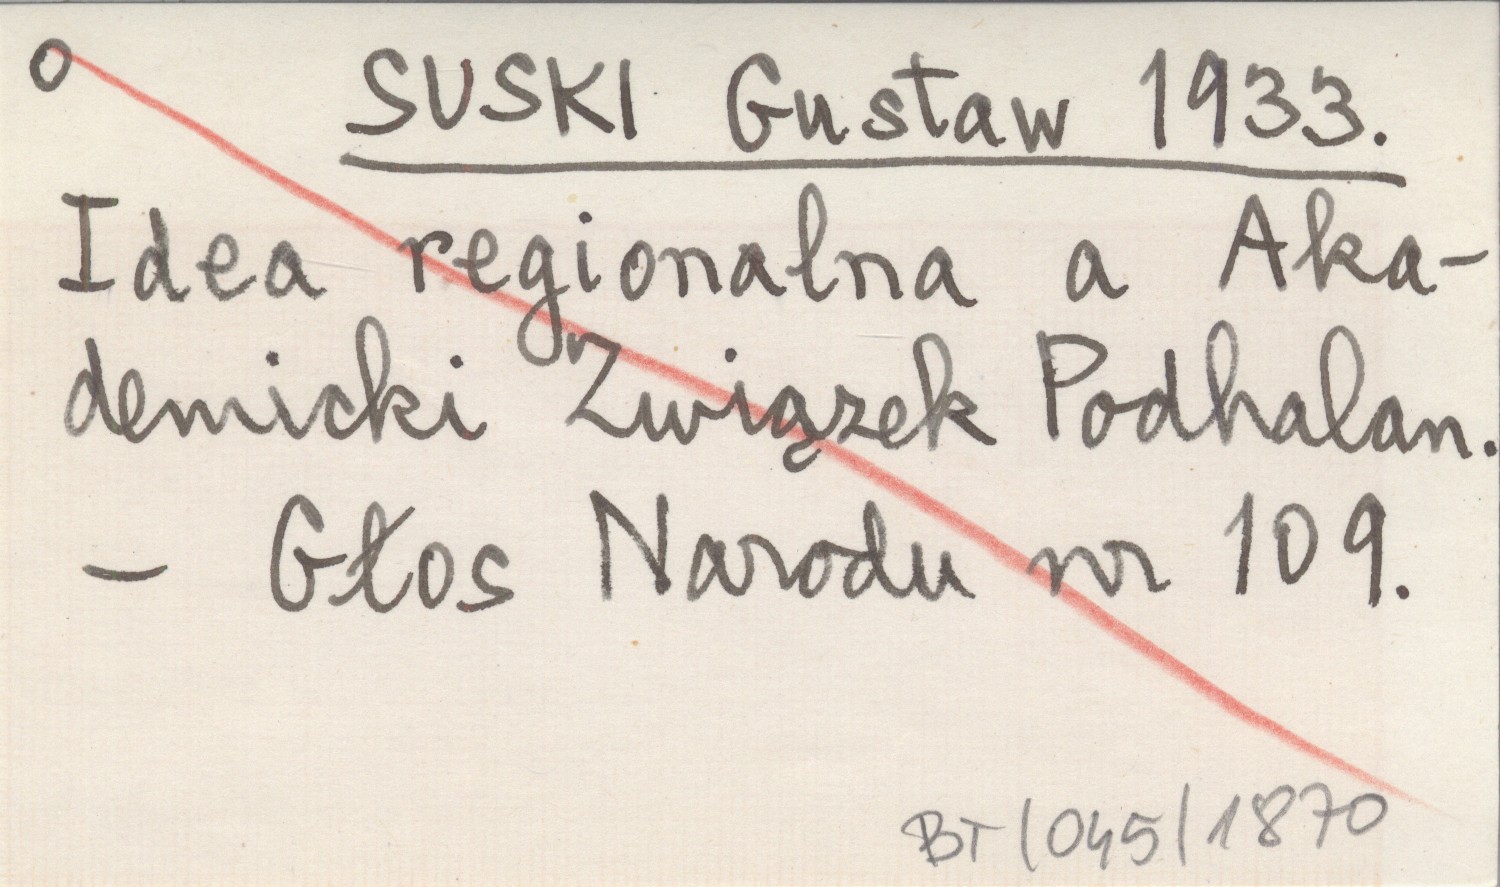 o
SUSKI Gustaw 1933.
Idea regionalna a Aka-
demicki Związek Podhalan.
– Głos Narodu nr 109.
BT/045/1870